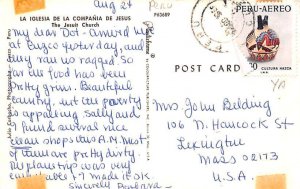 Aug 24
PERU
LA IGLESIA DE LA COMPAÑIA DE JESUS
The Jesuit Church
PK3689
My dear Dot - arrived
at Cuzco yesterday, and
they ran us ragged. So
far the food has been
pretty grim. Beautiful
country, but the poverty
is appalling. Sally and
I found several nice
clean shops this A.M. Most
of them are pretty dirty.
The plane trip was very
& I made it ok
Sincerely Barbara
POST CARD
PERU-AEREO
CULTURA NAZCA
Mrs. John Belding
106 N. Hancock St
Lexington
Mass 02173
U.S.A.